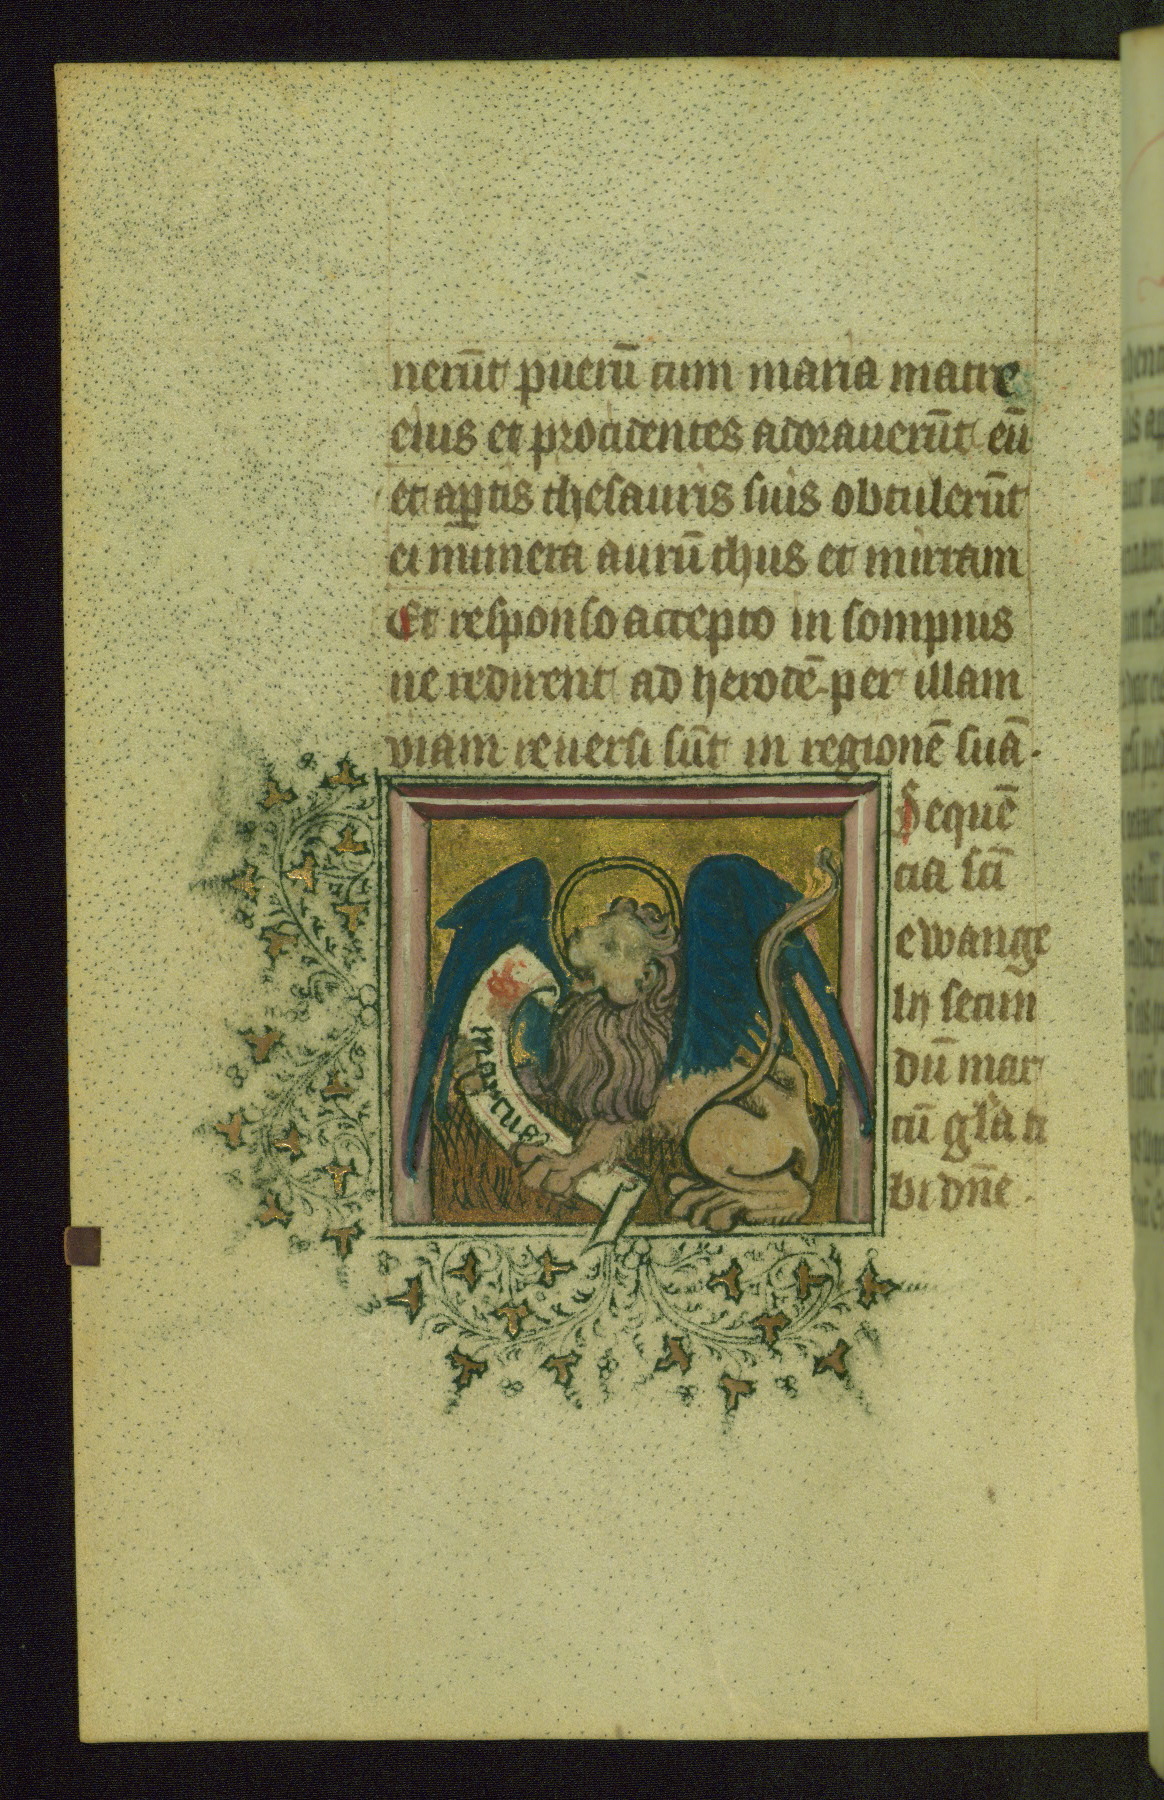 nerūt puerū cum maria matre
eius et procidentes adorauerūt eū
et aptis thesauris suis obtulerūt
ei munera aurū thus et mirram
Et responso accepto in sompnis
ne redirent ad herodē per illam
viam reuersi sūt in regionē suā.
Sequē
cia sci
ewange
lij secun
dū mar
cū gl'a ti
bi dn̄e.
S
marcus